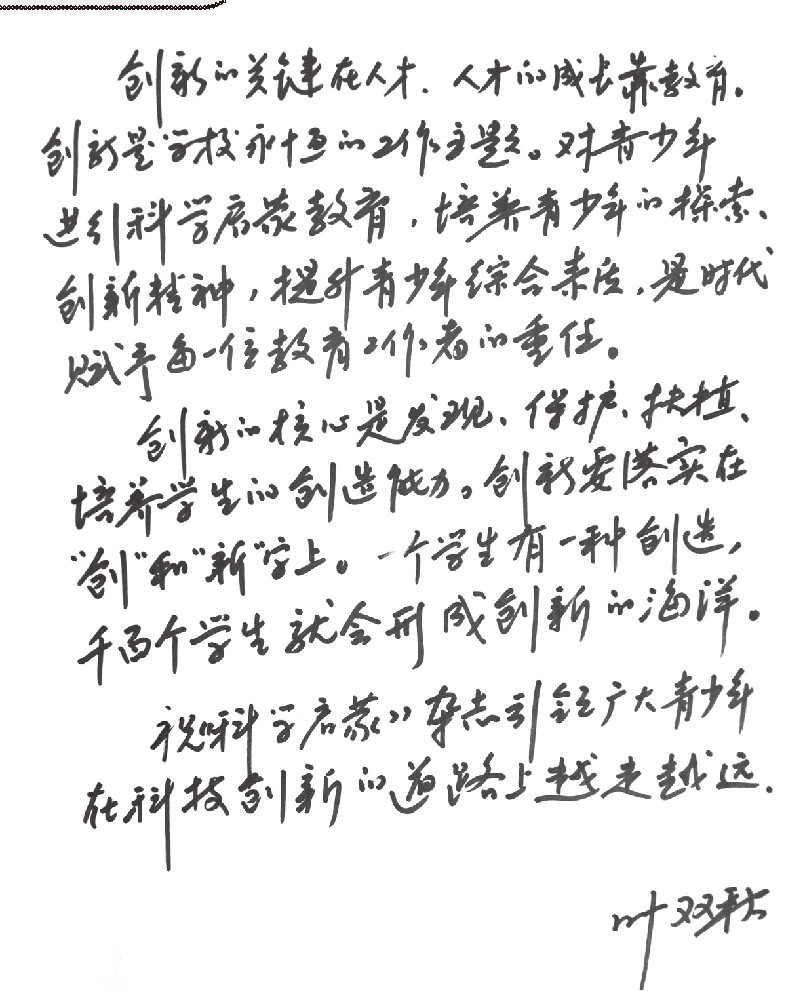 创新的关键在人才，人才的成长靠教育。
创新是学校永恒的工作主题。对青少年
进行科学启蒙教育，培养青少年的探索、
创新精神，提升青少年综合素质，是时代
赋予每一位教育工作者的重任。
创新的核心是发现、保护、扶植、
培养学生的创造能力。创新要落实在
“创”和“新”字上。一个学生有一种创造，
千百个学生就会形成创新的海洋。
祝《科学启蒙》杂志引领广大青少年
在科技创新的道路上越走越远.
叶双秋